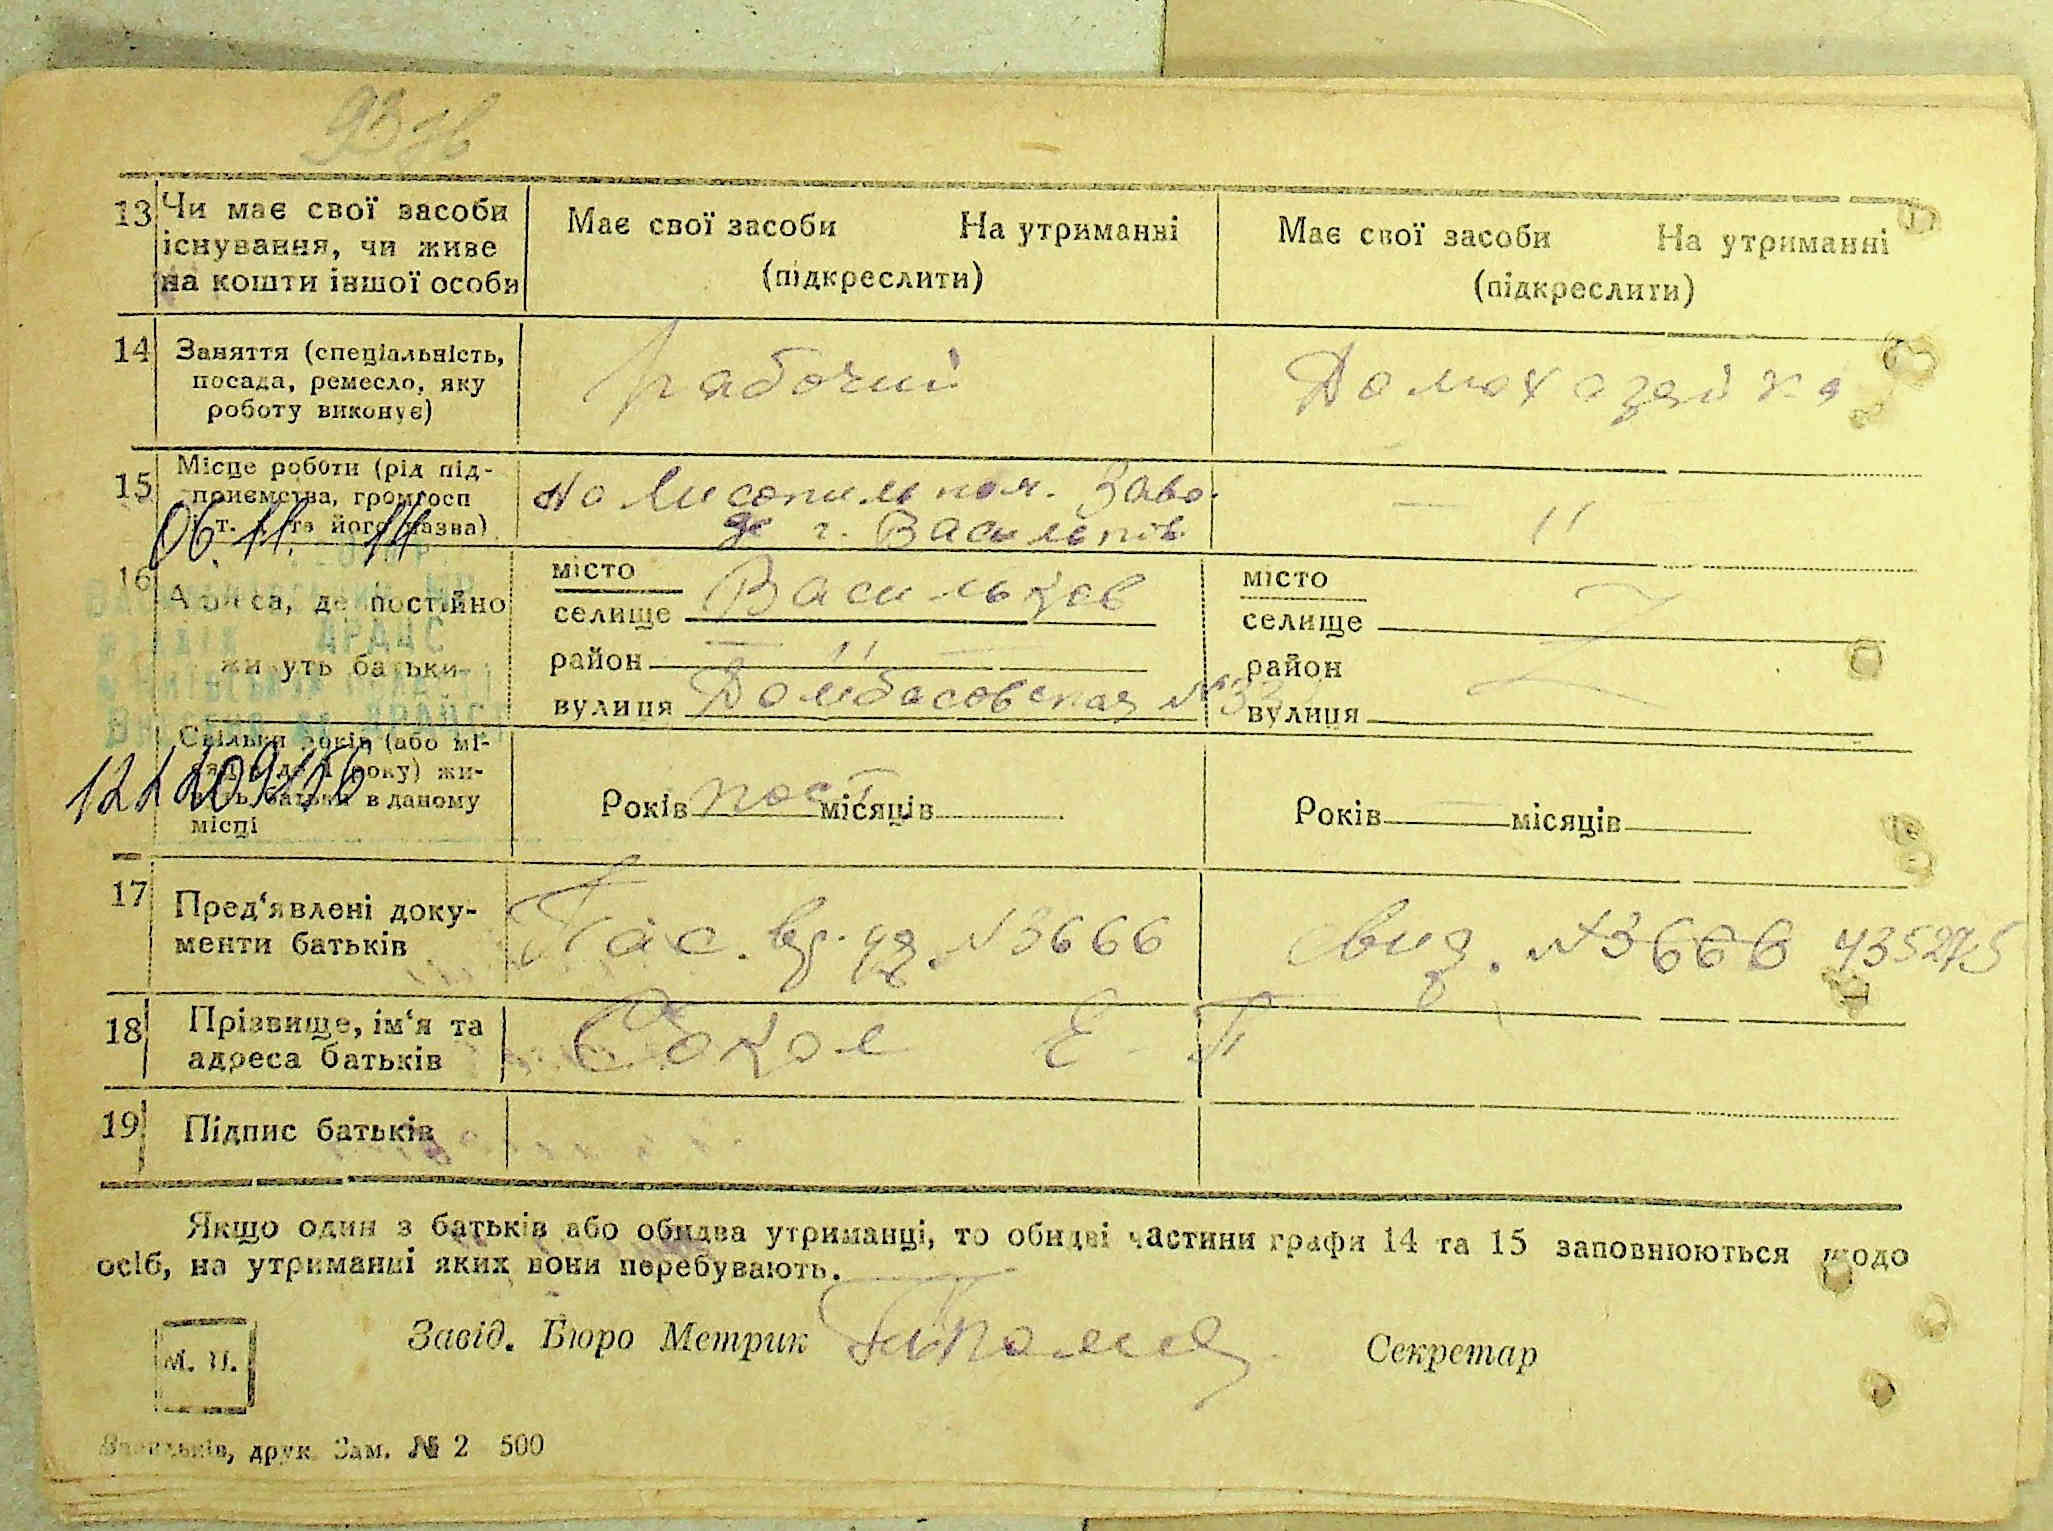 93
13 Чи має свої засоби існування, чи живе на кошти іншої особи
Має свої засоби На утриманні
(підкреслити)
Має свої засоби На утриманні
(підкреслити)
14 Заняття (спеціальність,
посада, ремесло, яку
роботу виконує)
рабочий
Домохозяйка
15 Місце роботи (рід під-
приємства, громгосп
і т. та його назва)
на Заво-
де г. Васильків
— " —
06. 11. 14
16 Адреса, де постійно
живуть батьки
місто
селище Васильков
район — " —
вулиця №33
місто
селище
район
вулиця
АРДАС
Скільки років (або мі-
сяців до 1 року) жи-
вуть батьки в даному
місці
Років пост місяців
Років — місяців
17 Пред‘явлені доку-
менти батьків
Пас. №3666
свид. №3666 435275
18 Прізвище, ім‘я та
адреса батьків
Сокол Е. П
19 Підпис батьків
Якщо один з батьків або обидва утриманці, то обидві частини графи 14 та 15 заповнюються щодо
осіб, на утриманні яких вони перебувають.
М. П.
Завід. Бюро Метрик
Секретар
Васильків, друк. Зам. № 2 500